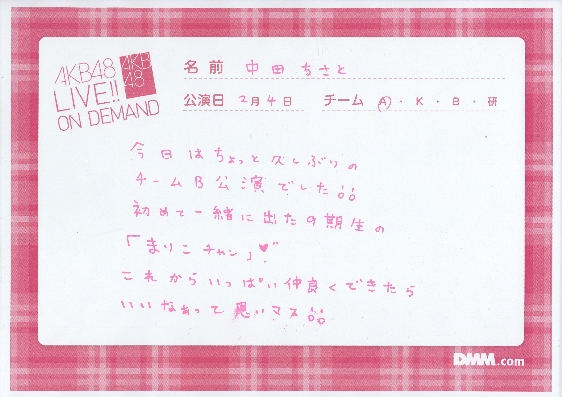 AKB48
LIVE!!
ON DEMAND
AKB
48
名前 中田ちさと
公演日 2月4日 チーム A・K・B・研
今日はちょっと久しぶりの
チームB公演でした
初めて一緒に出た9期生の
「まりこチャン」♥
これからいっぱい仲良くできたら
いいなぁって思いマス
DMM.com